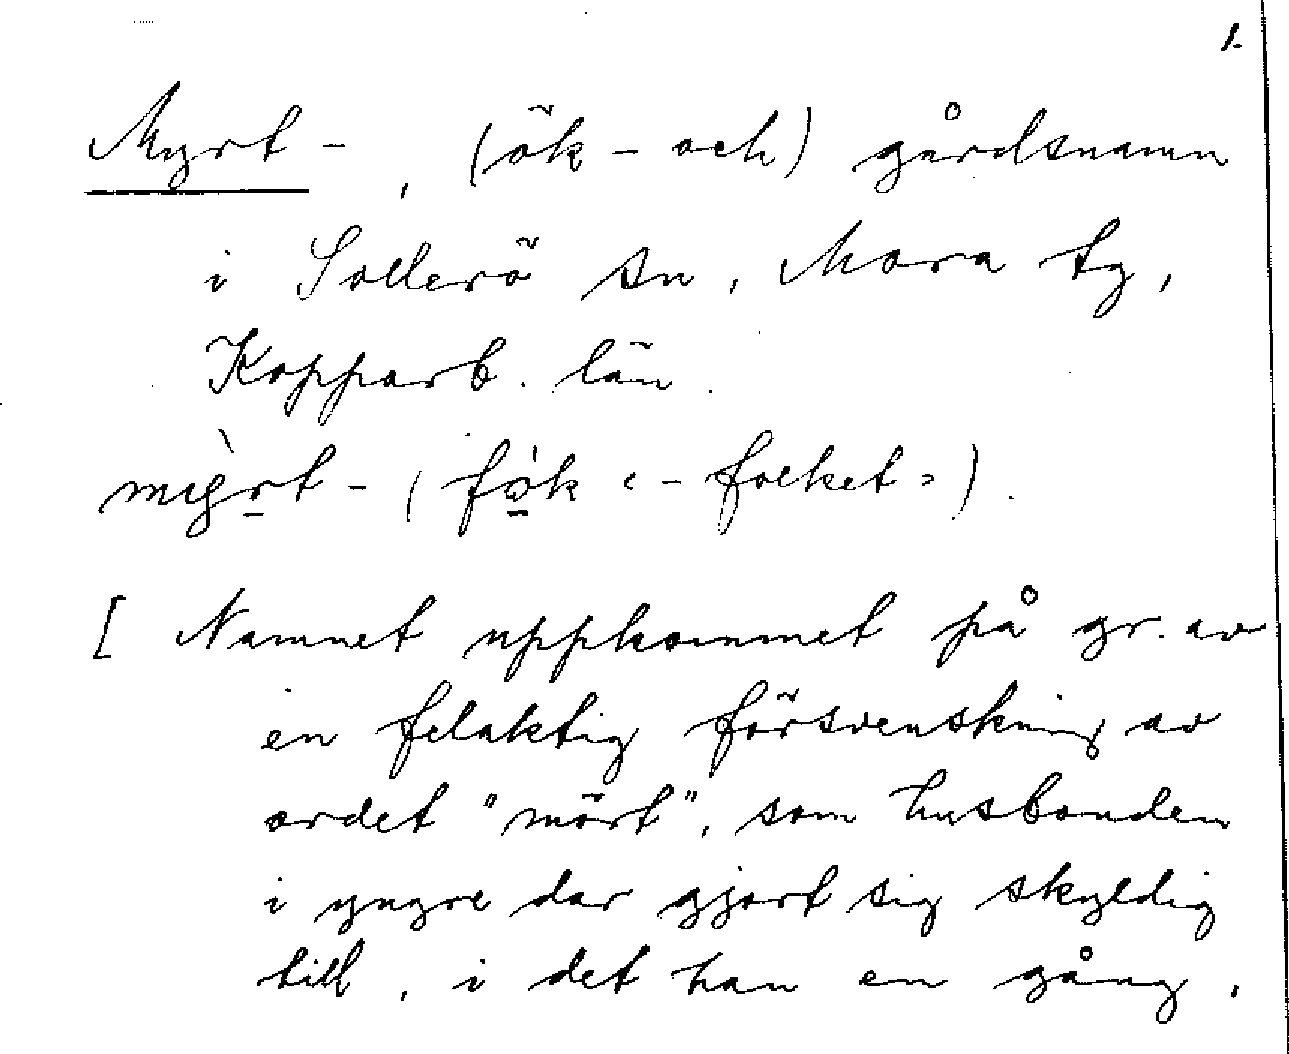 1.
Myrt-, (ök- och) gårdsnamn
i Sollerö sn, Mora tg,
Kopparb. län.
mỳrt- (fòk ‹-folket›).
[ Namnet uppkommet på gr. av
en felaktig försvenskning av
ordet "mört", som husbonden
i yngre dar gjort sig skyldig
till, i det han en gång,